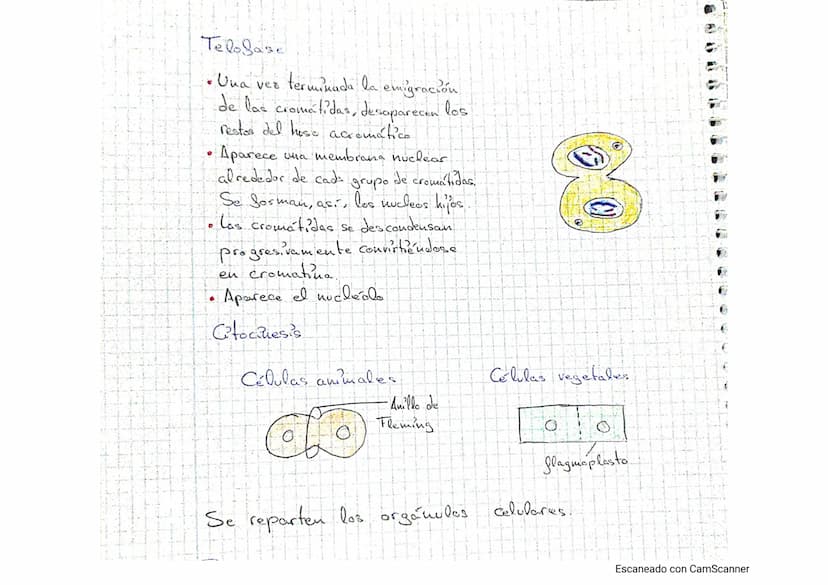 Telofase
• Una vez terminada la emigración
de las cromátidas, desaparecen los
restos del huso acromático
• Aparece una membrana nuclear
alrededor de cada grupo de cromátidas.
Se forman, así, los nucleos hijos.
• Las cromátidas se descondensan
progresivamente convirtiéndose
en cromatina.
• Aparece el nucléolo
Citocinesis
Células animales
Células vegetales
Anillo de
Fleming
flagmoplasto
Se reparten los orgánulos celulares.
Escaneado con CamScanner